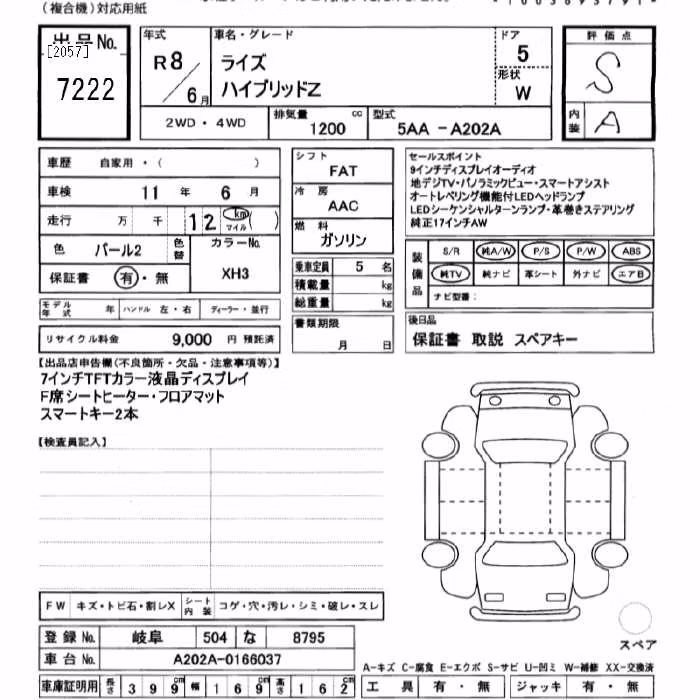 (複合機)対応用紙
出品No. [2057] 7222
年式 R8/6月
車名・グレード ライズ ハイブリッドZ
ドア 5
形状 W
評価点 S
内装 A
2WD・4WD
排気量 1200 cc
型式 5AA -A202A
車歴 自家用・( )
車検 11 年 6 月
走行 万 千 12 km マイル ( )
色 パール2 色替
カラーNo. XH3
保証書 有・無
シフト FAT
冷房 AAC
燃料 ガソリン
乗車定員 5 名
積載量 kg
総重量 kg
セールスポイント
9インチディスプレイオーディオ
地デジTV・パノラミックビュー・スマートアシスト
オートレベリング機能付LEDヘッドランプ
LEDシーケンシャルターンランプ・革巻きステアリング
純正17インチAW
装備品 S/R 純A/W P/S P/W ABS
純TV 純ナビ 革シート 外ナビ エアB
ナビ型番:
モデル年式 年 ハンドル 左・右 ディーラー・並行
書類期限 月 日
後日品
保証書 取説 スペアキー
リサイクル料金 9,000 円 預託済
【出品店申告欄(不良箇所・欠品・注意事項等)】
7インチTFTカラー液晶ディスプレイ
F席シートヒーター・フロアマット
スマートキー2本
【検査員記入】
FW キズ・トビ石・割レX シート内装 コゲ・穴・汚レ・シミ・破レ・スレ
登録No. 岐阜 504 な 8795
車台No. A202A-0166037
スペア
A-キズ C-腐食 E-エクボ S-サビ U-凹ミ W-補修 XX-交換済
車庫証明用 長さ 399cm 幅 169cm 高さ 162cm
工具 有・無 ジャッキ 有・無